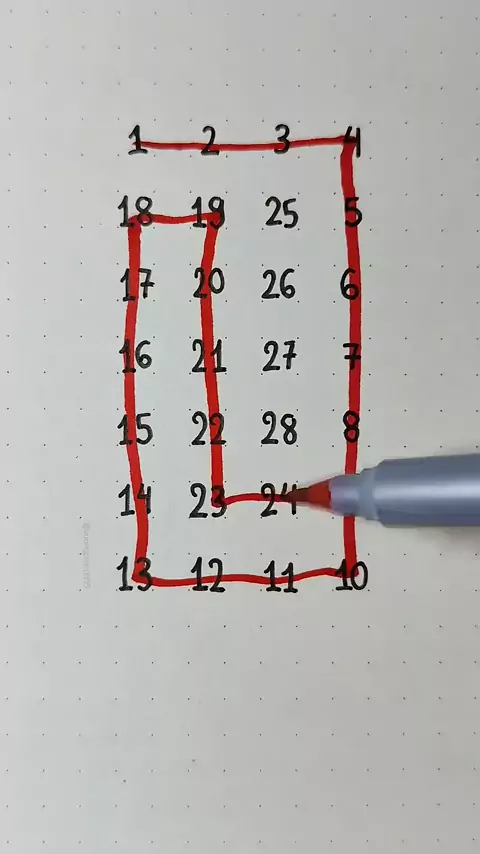 1 2 3 4
18 19 25 5
17 20 26 6
16 21 27 7
15 22 28 8
14 23 24
13 12 11 10